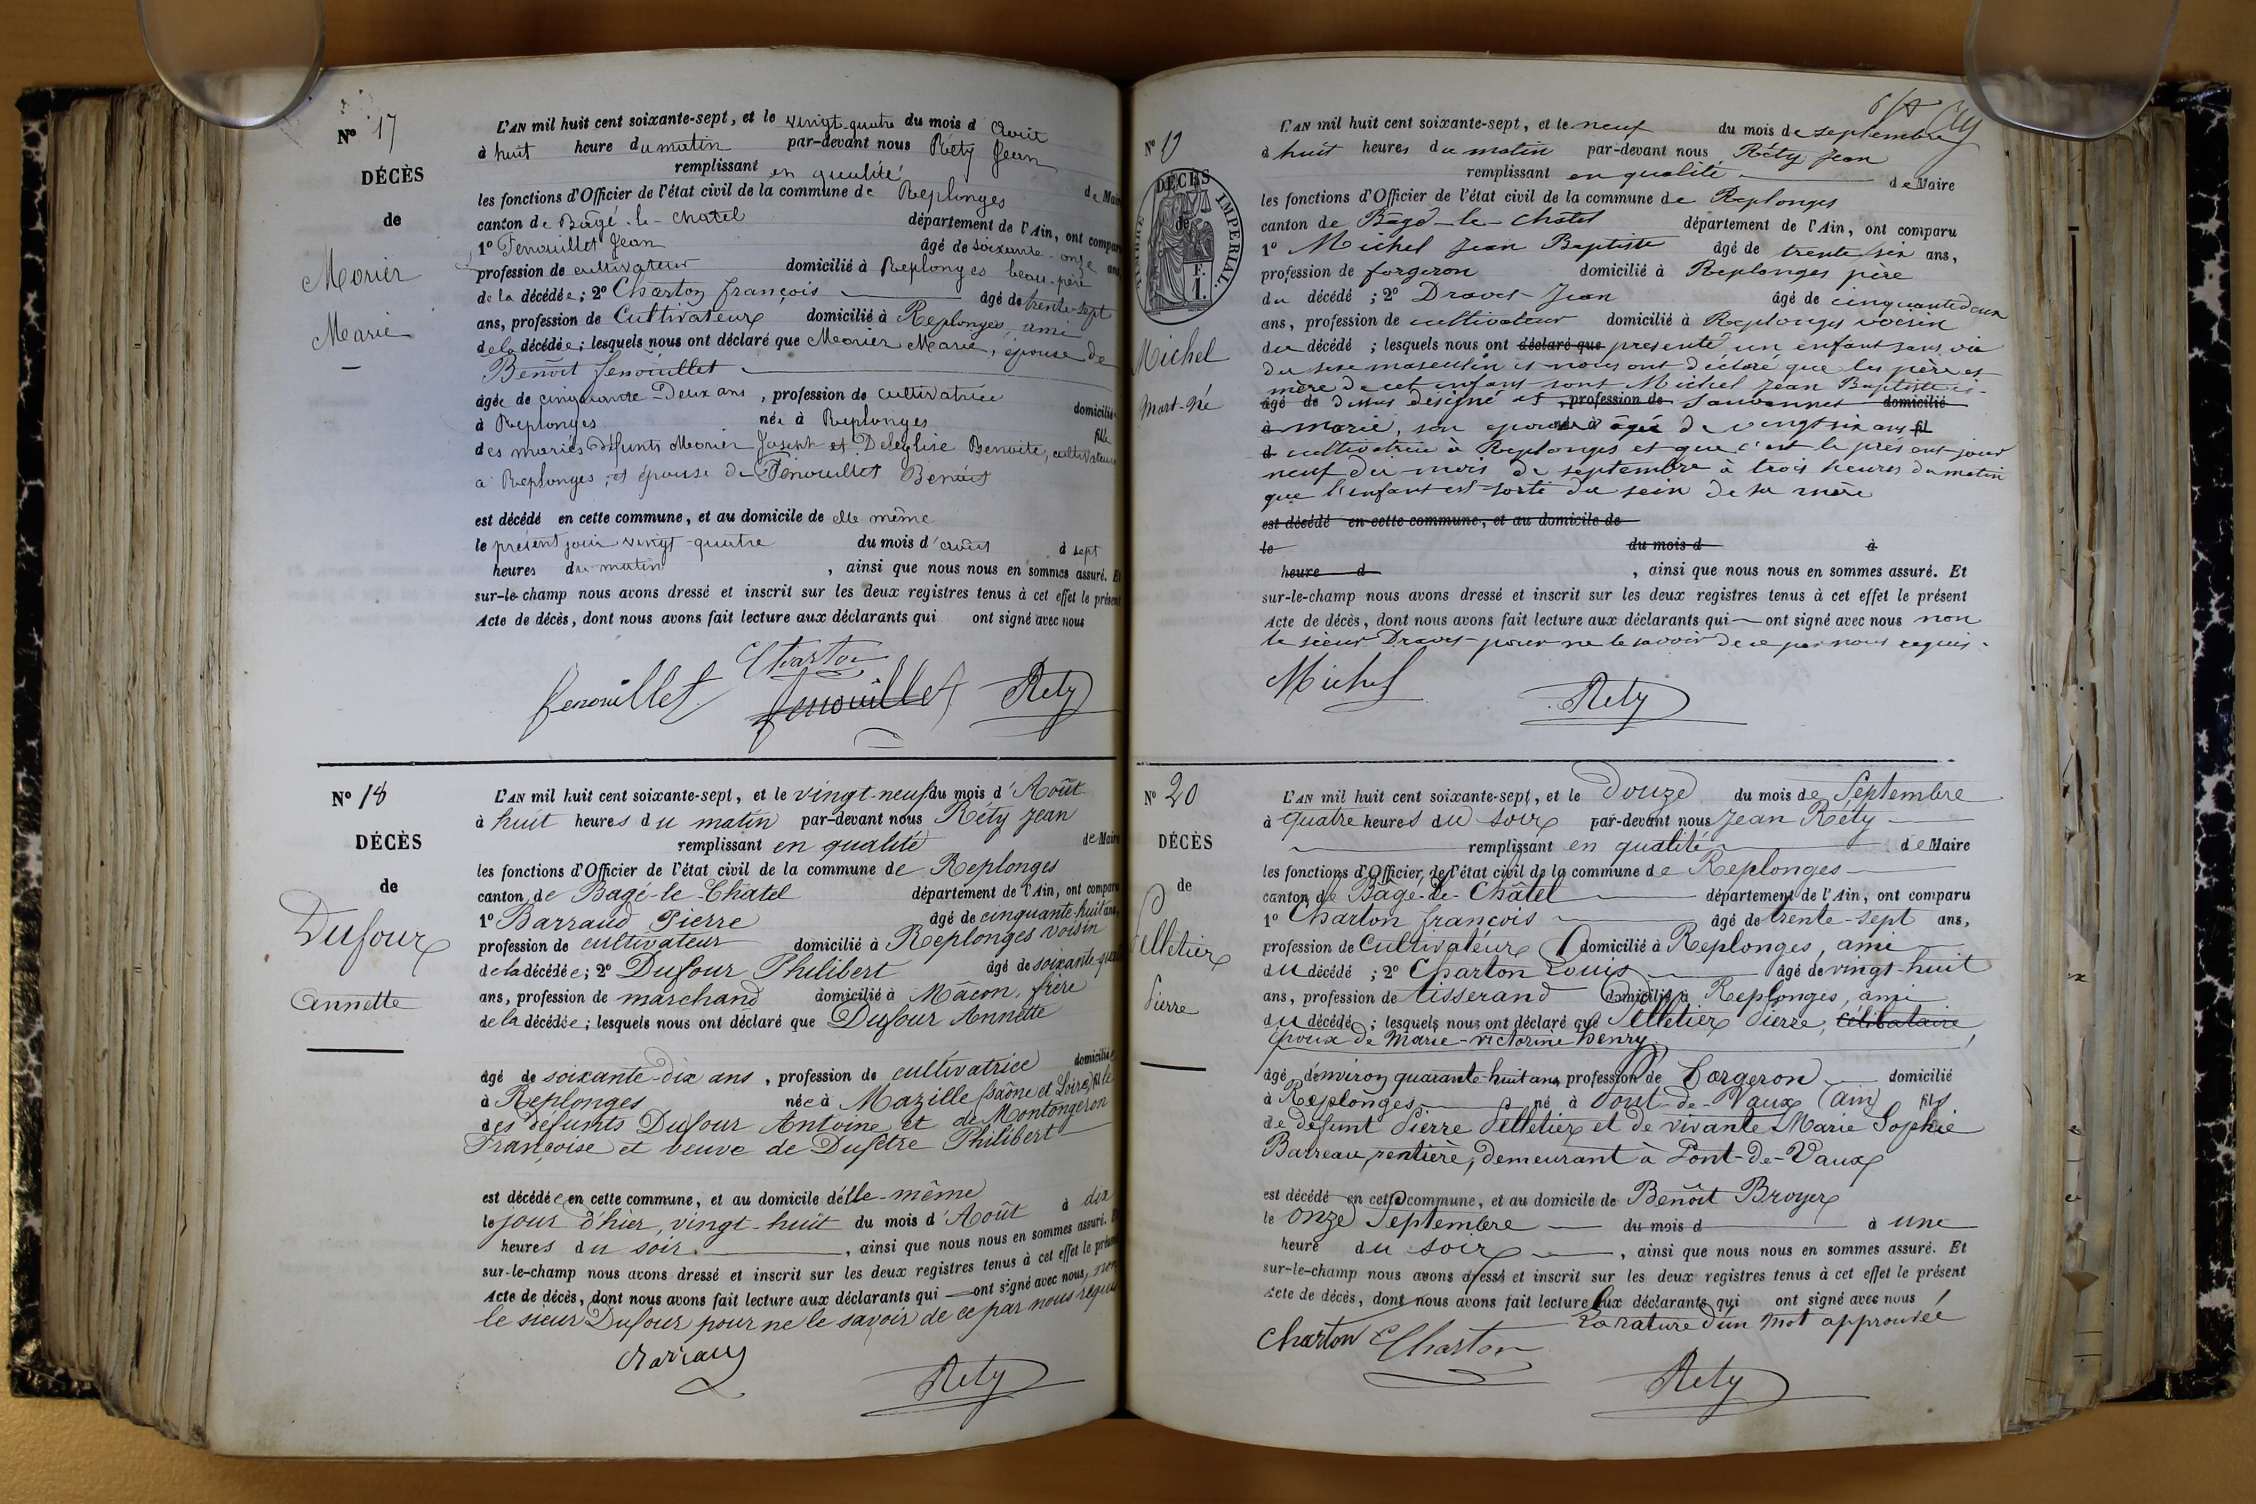 Nº 17
DÉCÈS
de
Morier
Marie
L'AN mil huit cent soixante-sept, et le vingt quatre du mois d'Août
à huit heure du matin par-devant nous Réty Jean
remplissant en qualité de Maire
les fonctions d'Officier de l'état civil de la commune de Replonges
canton de Bâgé-le-chatel département de l'Ain, ont comparu
1º Fenouillet Jean âgé de soixante-onze ans
profession de cultivateur domicilié à Replonges beau-père
de la décédée ; 2º Charton françois âgé de trente-sept
ans, profession de Cultivateur domicilié à Replonges, ami
de la décédée ; lesquels nous ont déclaré que Morier Marie, épouse de
Benoit fenouillet
âgée de cinquante-Deux ans, profession de cultivatrice domiciliée
à Replonges née à Replonges fille
des mariés défunts Morier Joseph et Deléglise Benoite, cultivateurs
à Replonges, et épouse de Fenouillet Benoit
est décédé en cette commune, et au domicile de elle même
le présent jour vingt-quatre du mois d'août à sept
heures du matin, ainsi que nous nous en sommes assuré. Et
sur-le-champ nous avons dressé et inscrit sur les deux registres tenus à cet effet le présent
Acte de décès, dont nous avons fait lecture aux déclarants qui ont signé avec nous
Charton
fenouillet fenouillet Réty
Nº 18
DÉCÈS
de
Dufour
Annette
L'AN mil huit cent soixante-sept, et le vingt-neuf du mois d'Août
à huit heures du matin par-devant nous Réty Jean
remplissant en qualité de Maire
les fonctions d'Officier de l'état civil de la commune de Replonges
canton de Bagé-le-Châtel département de l'Ain, ont comparu
1º Barraud Pierre âgé de cinquante-huit ans,
profession de cultivateur domicilié à Replonges voisin
de la décédée ; 2º Dufour Philibert âgé de soixante-quatre
ans, profession de marchand domicilié à Mâcon, frère
de la décédée ; lesquels nous ont déclaré que Dufour Annette
âgé de soixante-dix ans, profession de cultivatrice domiciliée
à Replonges née à Mazille (Saône et Loire) fille
des défunts Dufour Antoine et de Montongeron
Françoise et veuve de Dufetre Philibert
est décédée en cette commune, et au domicile d'elle-même
le jour d'hier, vingt-huit du mois d'Août à dix
heures du soir, ainsi que nous nous en sommes assuré. Et
sur-le-champ nous avons dressé et inscrit sur les deux registres tenus à cet effet le présent
Acte de décès, dont nous avons fait lecture aux déclarants qui ont signé avec nous, non
le sieur Dufour pour ne le savoir de ce par nous requis
Réty
Nº 19
DÉCÈS
de
TIMBRE IMPÉRIAL
F.
1.
Michel
Mort-Né
L'AN mil huit cent soixante-sept, et le neuf du mois de septembre
à huit heures du matin par-devant nous Réty Jean
remplissant en qualité de Maire
les fonctions d'Officier de l'état civil de la commune de Replonges
canton de Bâgé-le-chatel département de l'Ain, ont comparu
1º Michel Jean Baptiste âgé de trente six ans,
profession de forgeron domicilié à Replonges père
du décédé ; 2º Draves Jean âgé de cinquante deux
ans, profession de cultivateur domicilié à Replonges voisin
du décédé ; lesquels nous ont déclaré que présenté un enfant sans vie
du sexe masculin et nous ont déclaré que les père et
mère de cet enfant sont Michel Jean Baptiste ci-
âgé de dessus désigné et, profession de domicilié
à marie, son épouse âgée de vingt six ans fil
d cultivatrice à Replonges et que c'est le présent jour
neuf du mois de septembre à trois heures du matin
que l'enfant est sorti du sein de sa mère
est décédé en cette commune, et au domicile de
le du mois d à
heure d, ainsi que nous nous en sommes assuré. Et
sur-le-champ nous avons dressé et inscrit sur les deux registres tenus à cet effet le présent
Acte de décès, dont nous avons fait lecture aux déclarants qui ont signé avec nous non
le sieur Draves pour ne le savoir de ce par nous requis.
Michel Réty
Nº 20
DÉCÈS
de
Pelletier
Pierre
L'AN mil huit cent soixante-sept, et le Douze du mois de Septembre
à Quatre heures du soir par-devant nous Jean Réty
remplissant en qualité de Maire
les fonctions d'Officier de l'état civil de la commune de Replonges
canton de Bâgé-le-Châtel département de l'Ain, ont comparu
1º Charton françois âgé de trente-sept ans,
profession de Cultivateur domicilié à Replonges, ami
du décédé ; 2º Charton Louis âgé de vingt-huit
ans, profession de tisserand domicilié à Replonges, ami
du décédé ; lesquels nous ont déclaré que Pelletier Pierre, célibataire,
époux de Marie-victorine henry,
âgé d'environ quarante huit ans, profession de Forgeron domicilié
à Replonges né à Pont-de-Vaux (Ain) fils
de défunt Pierre Pelletier et de vivante Marie Sophie
Barreau, rentière, demeurant à Pont-de-Vaux
est décédé en cette commune, et au domicile de Benoît Broyer
le onze Septembre du mois d à une
heure du soir, ainsi que nous nous en sommes assuré. Et
sur-le-champ nous avons dressé et inscrit sur les deux registres tenus à cet effet le présent
Acte de décès, dont nous avons fait lecture aux déclarants qui ont signé avec nous /
La rature d'un mot approuvée
Charton Charton
Réty